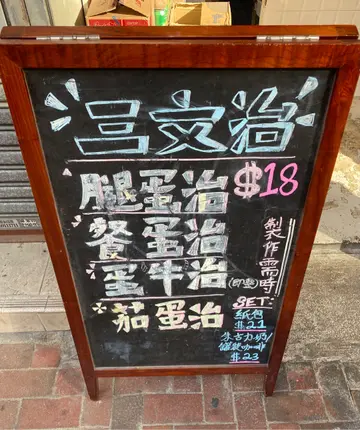 三文治
腿蛋治 $18
餐蛋治
蛋牛治(即整)
茄蛋治
製作需時
SET:
紙包
$21
朱古力奶/
罐裝咖啡
$23